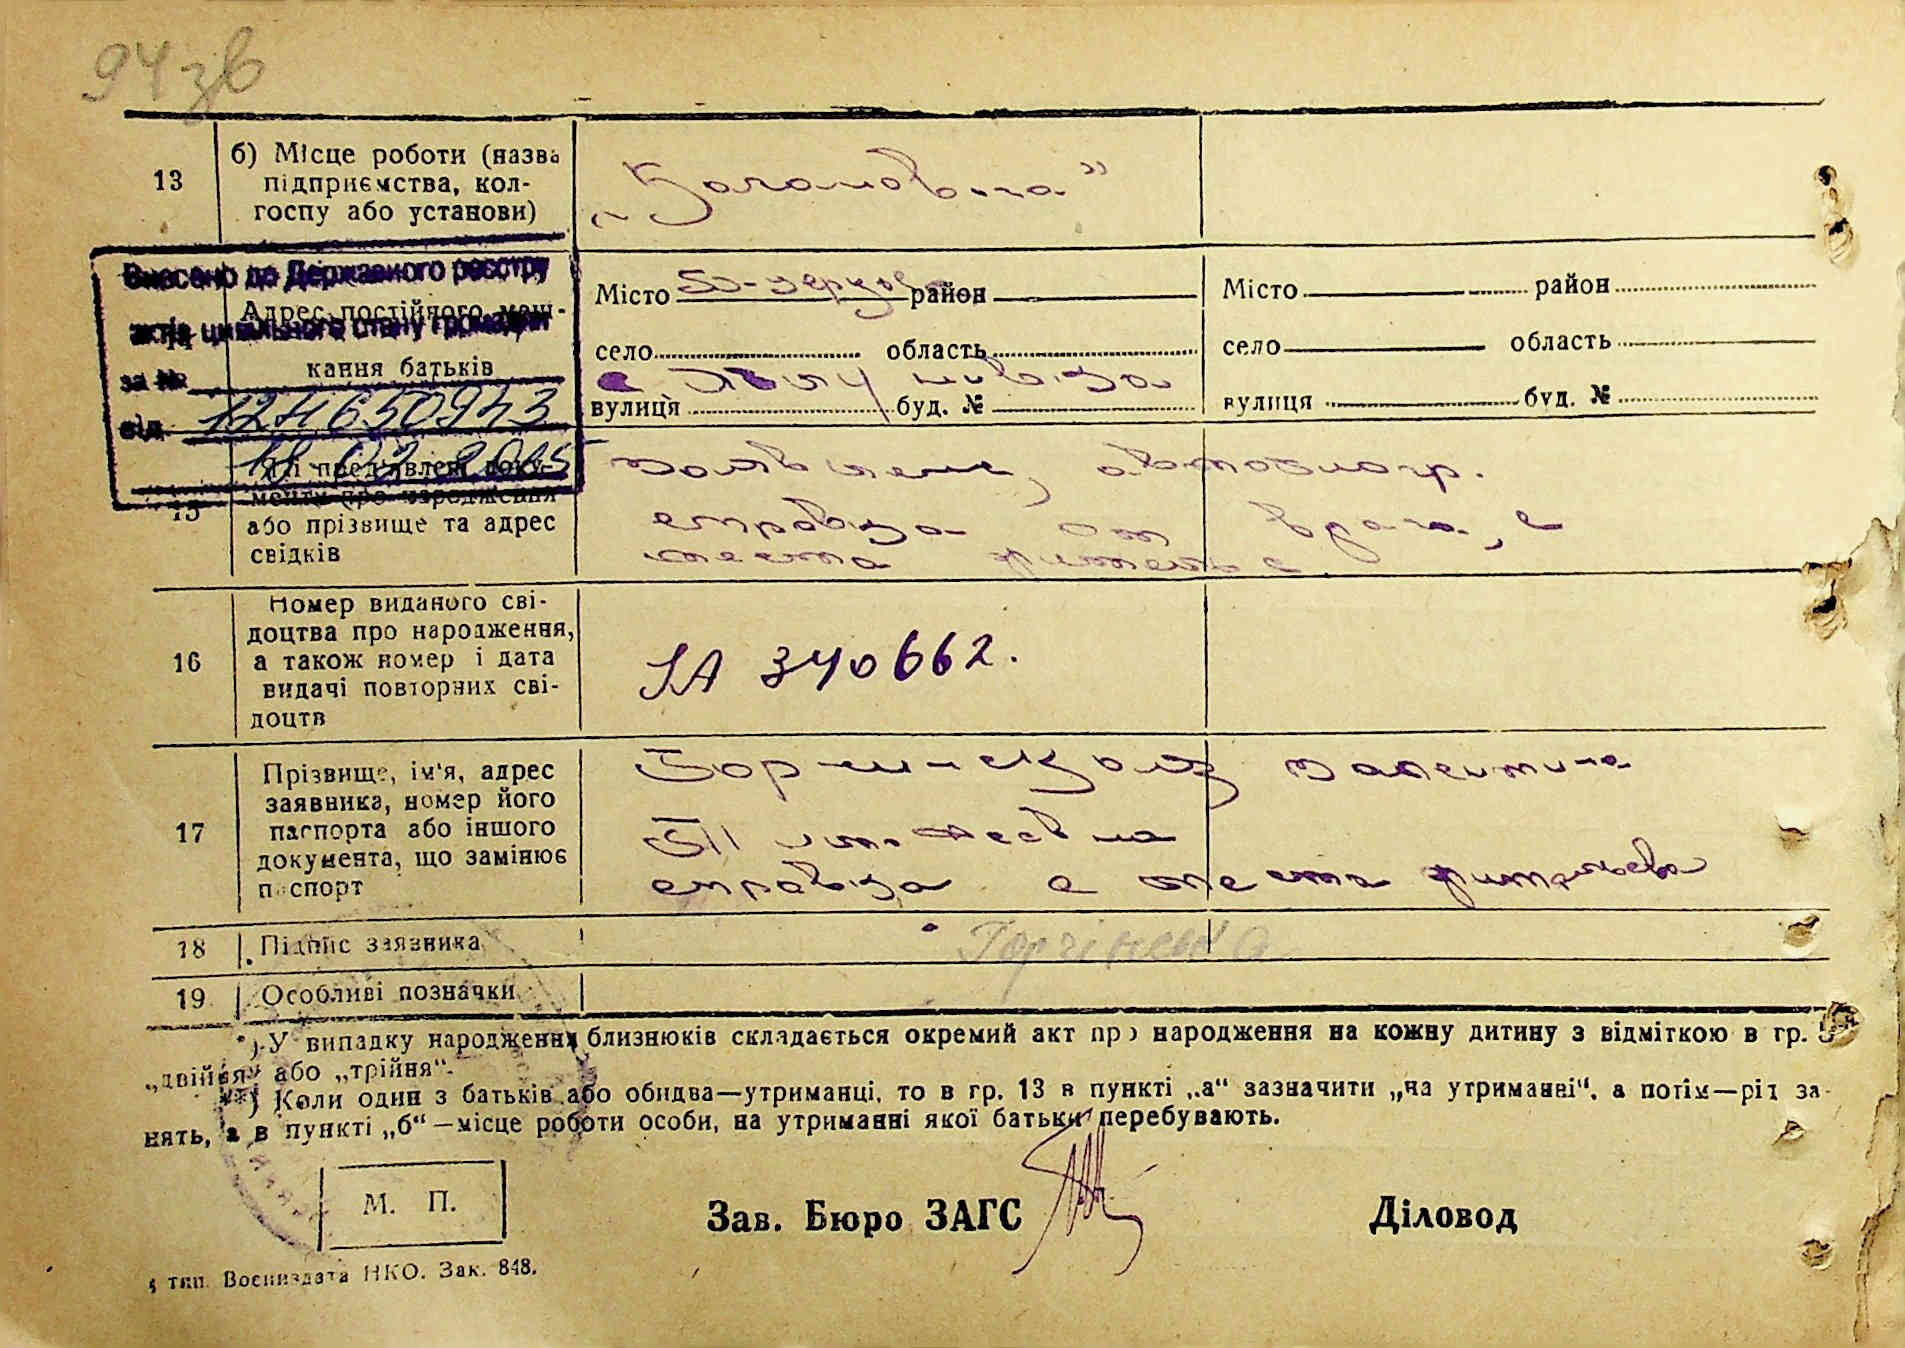 94 зв
13
б) Місце роботи (назва
підприємства, кол-
госпу або установи)
„Кагановича”
Внесено до Державного реєстру
актів цивільного стану громадян
за №
12
від
18 02 2015
Адрес постійного меш-
кання батьків
Місто район
село область
вулиця буд. №
Місто район
село область
вулиця буд. №
15
Які пред'явлені доку-
менти про народження
або прізвище та адрес
свідків
справка от врача, с
места
16
Номер виданого сві-
доцтва про народження,
а також номер і дата
видачі повторних сві-
доцтв
ІА 340662.
17
Прізвище, ім'я, адрес
заявника, номер його
паспорта або іншого
документа, що замінює
паспорт
Валентина
справка с места жительства
18
Підпис заявника
19
Особливі позначки
*) У випадку народження близнюків складається окремий акт про народження на кожну дитину з відміткою в гр. 5
„двійня“ або „трійня“.
**) Коли один з батьків або обидва—утриманці, то в гр. 13 в пункті „а“ зазначити „на утриманні“, а потім—рід за-
нять, а в пункті „б“—місце роботи особи, на утриманні якої батьки перебувають.
М. П.
Зав. Бюро ЗАГС
Діловод
тип. Воениздата НКО. Зак. 848.